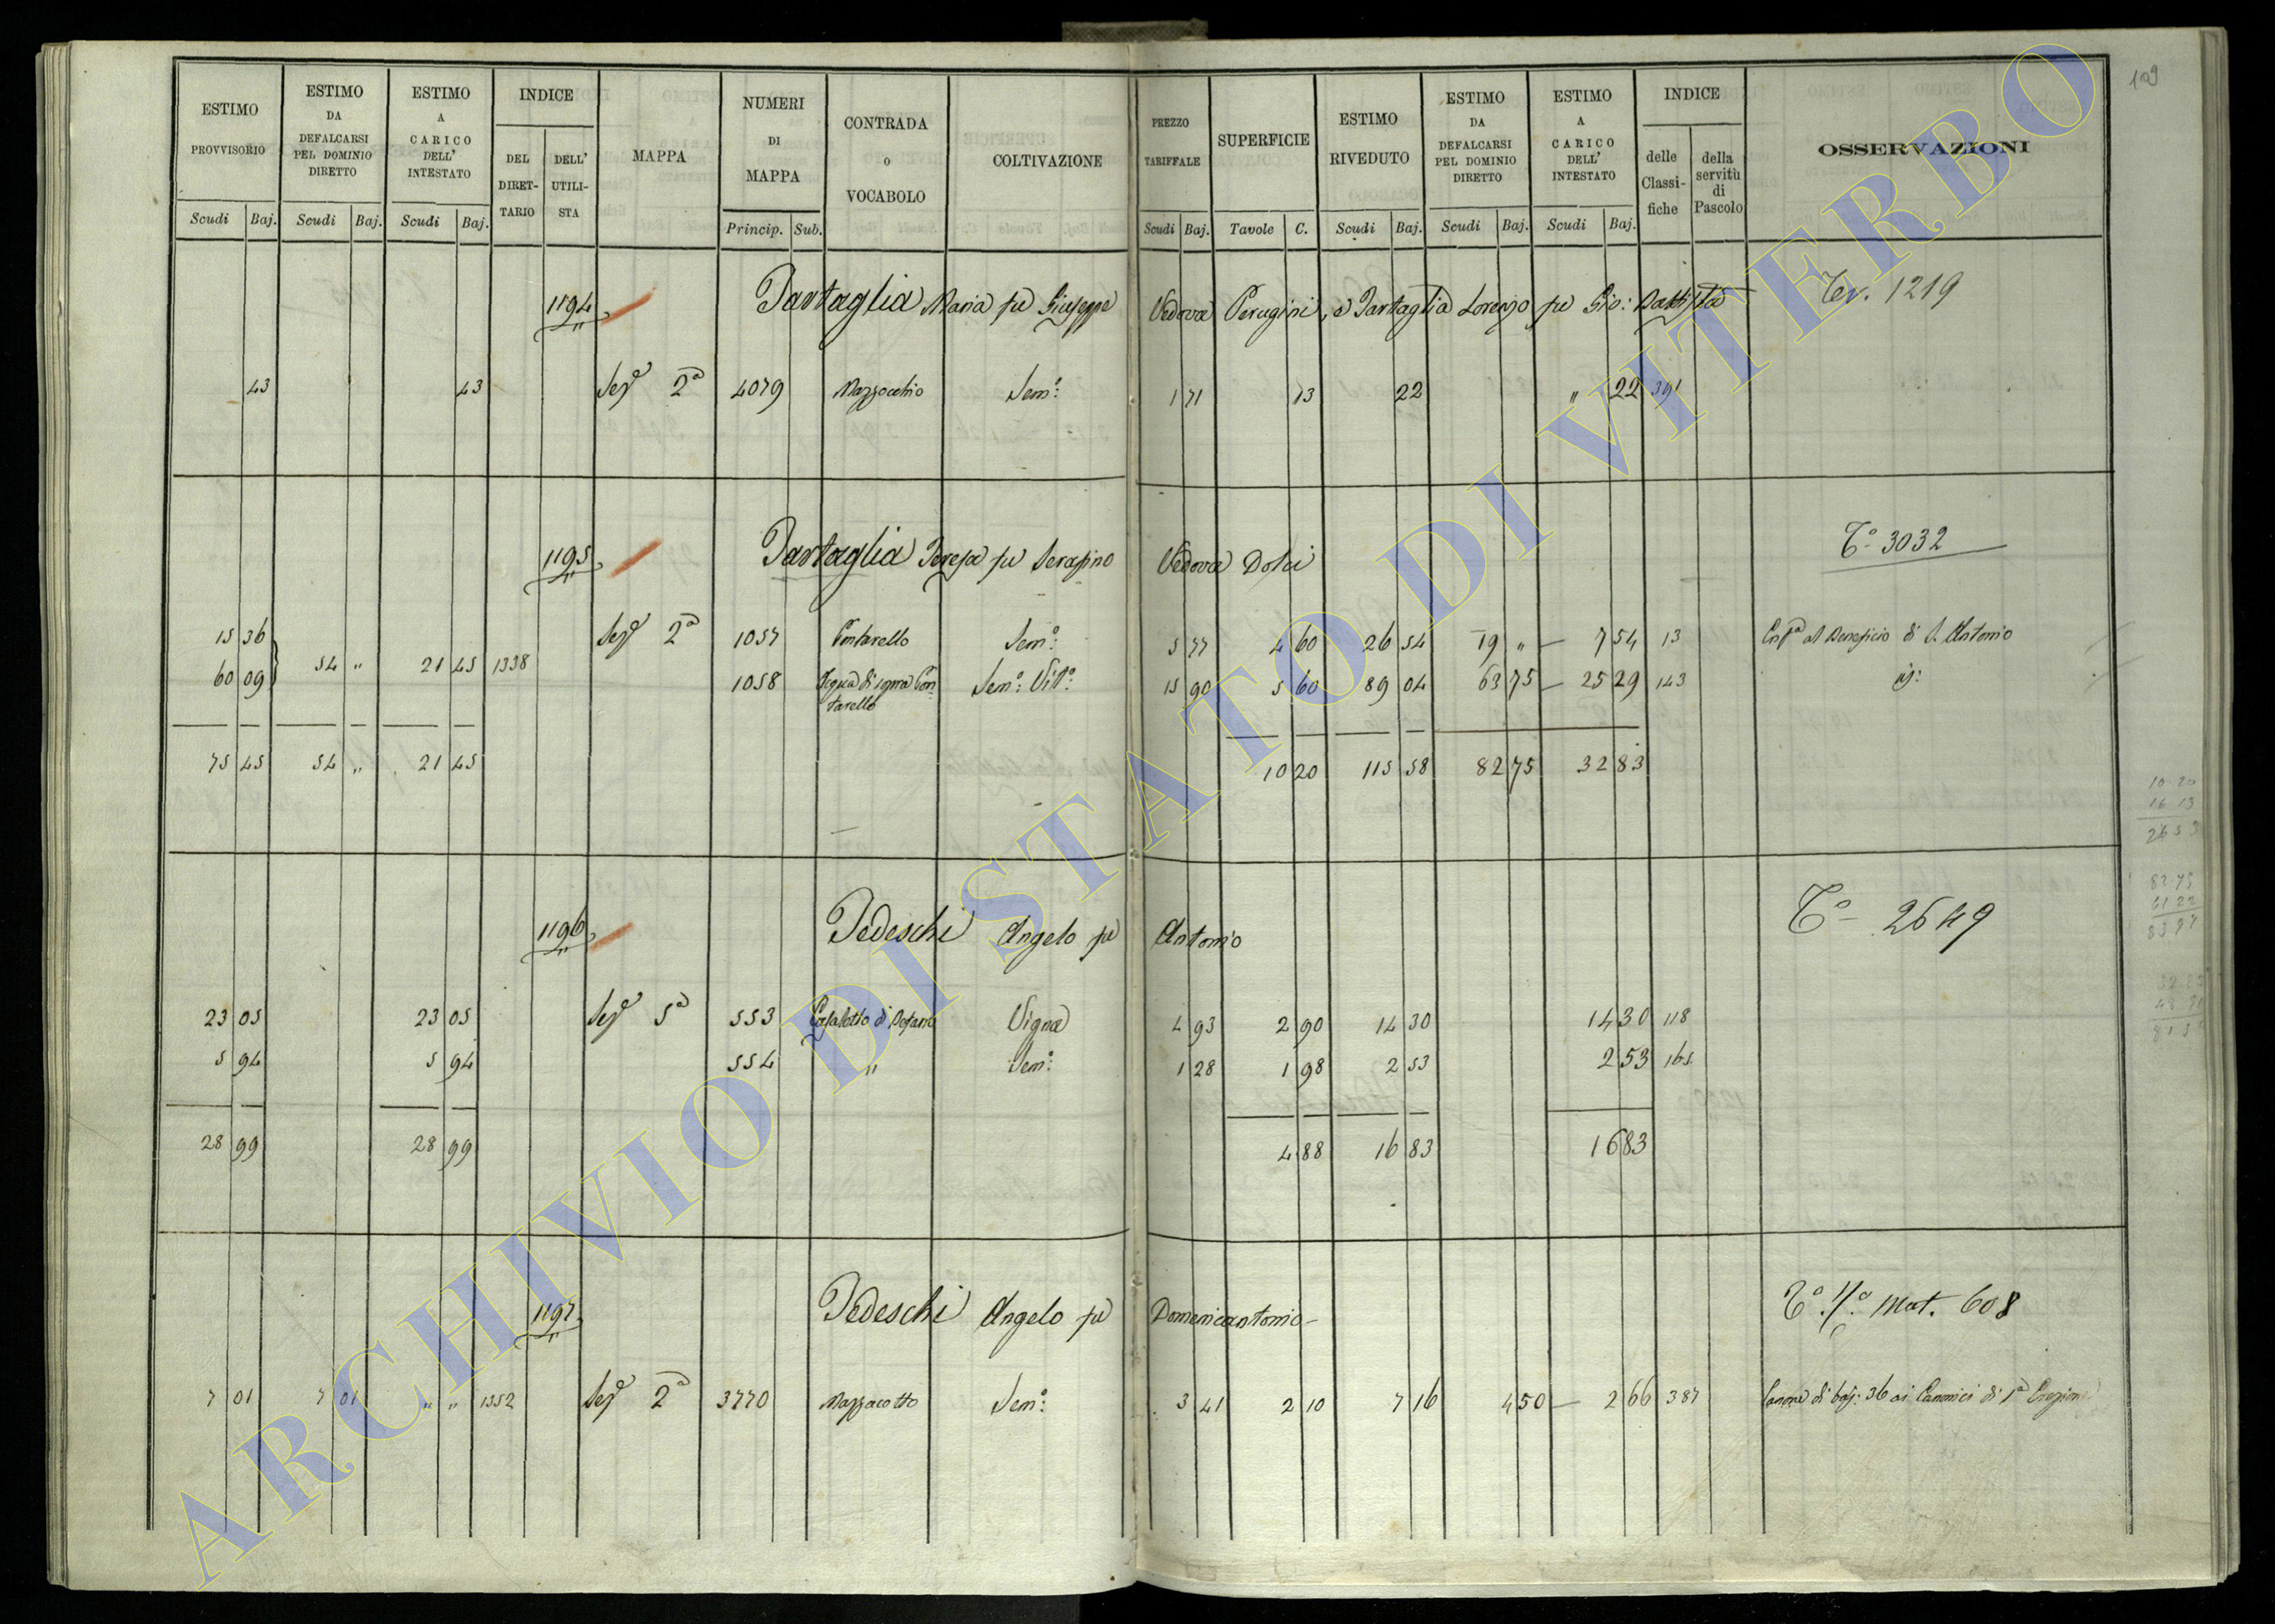 109
ESTIMO PROVVISORIO Scudi Baj. ESTIMO DA DEFALCARSI PEL DOMINIO DIRETTO Scudi Baj. ESTIMO A CARICO DELL' INTESTATO Scudi Baj. INDICE DEL DIRET- TARIO DELL' UTILI- STA MAPPA NUMERI DI MAPPA Princip. Sub. CONTRADA o VOCABOLO COLTIVAZIONE PREZZO TARIFFALE Scudi Baj. SUPERFICIE Tavole C. ESTIMO RIVEDUTO Scudi Baj. ESTIMO DA DEFALCARSI PEL DOMINIO DIRETTO Scudi Baj. ESTIMO A CARICO DELL' INTESTATO Scudi Baj. INDICE delle Classi- fiche della servitù di Pascolo OSSERVAZIONI
1194 Tartaglia Maria fu Giuseppe Vedova Perugini, e Tartaglia Lorenzo fu Gio: Battista Tev. 1219
43 43 Sezᵉ 2ᵃ 4079 Mazzocchio Semᵒ: 1 71 73 22 " 22 391
1195 Tartaglia Teresa fu Serafino Vedova Dolci Tᵒ 3032
15 36 Sezᵉ 2ᵃ 1057 Pontarello Semᵒ: 5 77 4 60 26 54 19 " 7 54 13 Enfᵃ al Beneficio di S. Antonio
54 " 21 45 1338
60 09 1058 Acqua di sopra Pon- tarello Semᵒ: Vitᵒ: 15 90 5 60 89 04 63 75 25 29 143 id:
75 45 54 " 21 45 10 20 115 58 82 75 32 83
10 20
16 13
26 33
82 75
1196 Tedeschi Angelo fu Antonio Tᵒ 2649
23 05 23 05 Sezᵉ 5ᵃ 553 Vigna 4 93 2 90 14 30 14 30 118
5 94 5 94 554 " Semᵒ: 1 28 1 98 2 53 2 53 165
28 99 28 99 4 88 16 83 16 83
1197 Tedeschi Angelo fu Domenicantonio Tᵒ 7ᵒ Mat. 608
7 01 7 01 " " 1352 Sezᵉ 2ᵃ 3770 Mazzacotto Semᵒ: 3 41 2 10 7 16 4 50 2 66 387 Canone di baj: 36 ai Canonici di 1ᵃ Erezione
ARCHIVIO DI STATO DI VITERBO